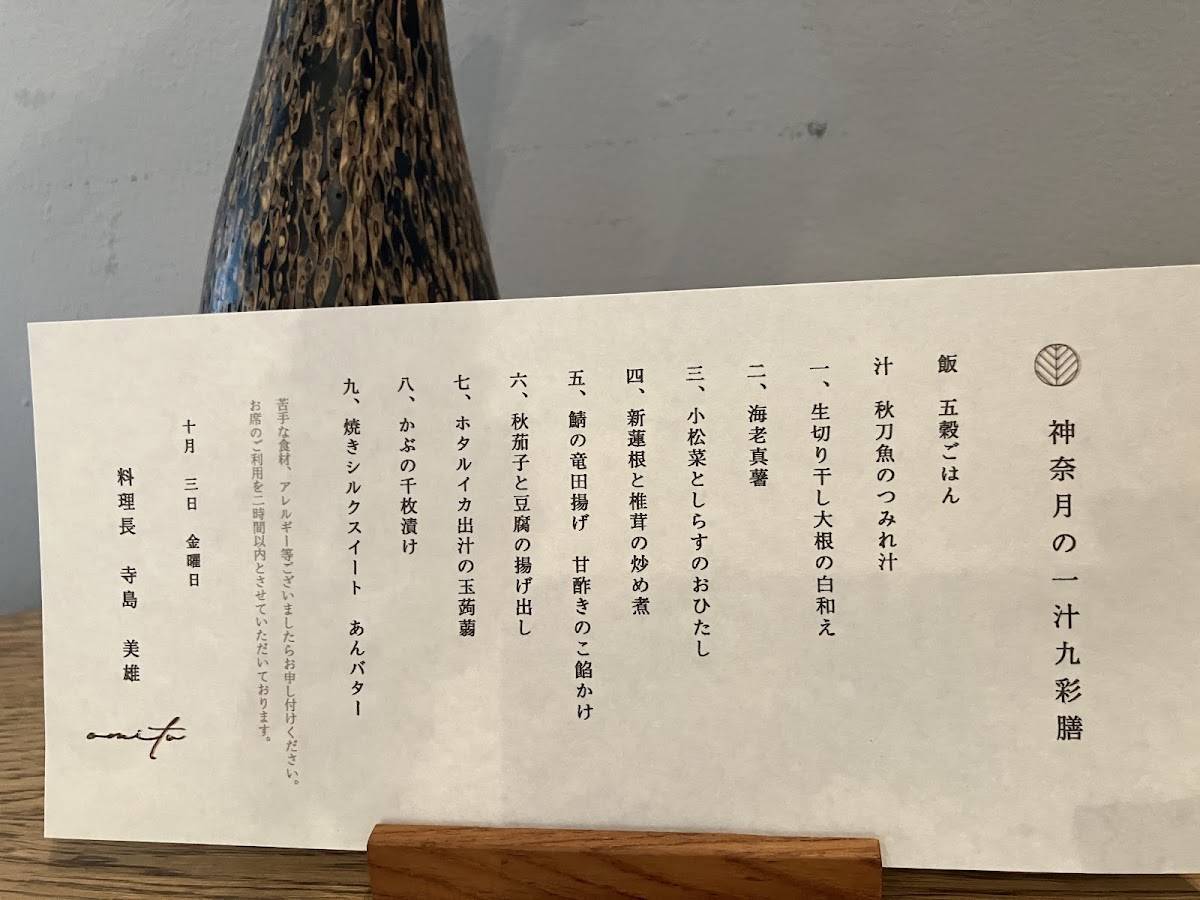 神奈月の一汁九彩膳
飯　五穀ごはん
汁　秋刀魚のつみれ汁
一、生切り干し大根の白和え
二、海老真薯
三、小松菜としらすのおひたし
四、新蓮根と椎茸の炒め煮
五、鯖の竜田揚げ　甘酢きのこ餡かけ
六、秋茄子と豆腐の揚げ出し
七、ホタルイカ出汁の玉蒟蒻
八、かぶの千枚漬け
九、焼きシルクスイート　あんバター
苦手な食材、アレルギー等ございましたらお申し付けください。
お席のご利用を二時間以内とさせていただいております。
十月　三日　金曜日
料理長　寺島　美雄
omito